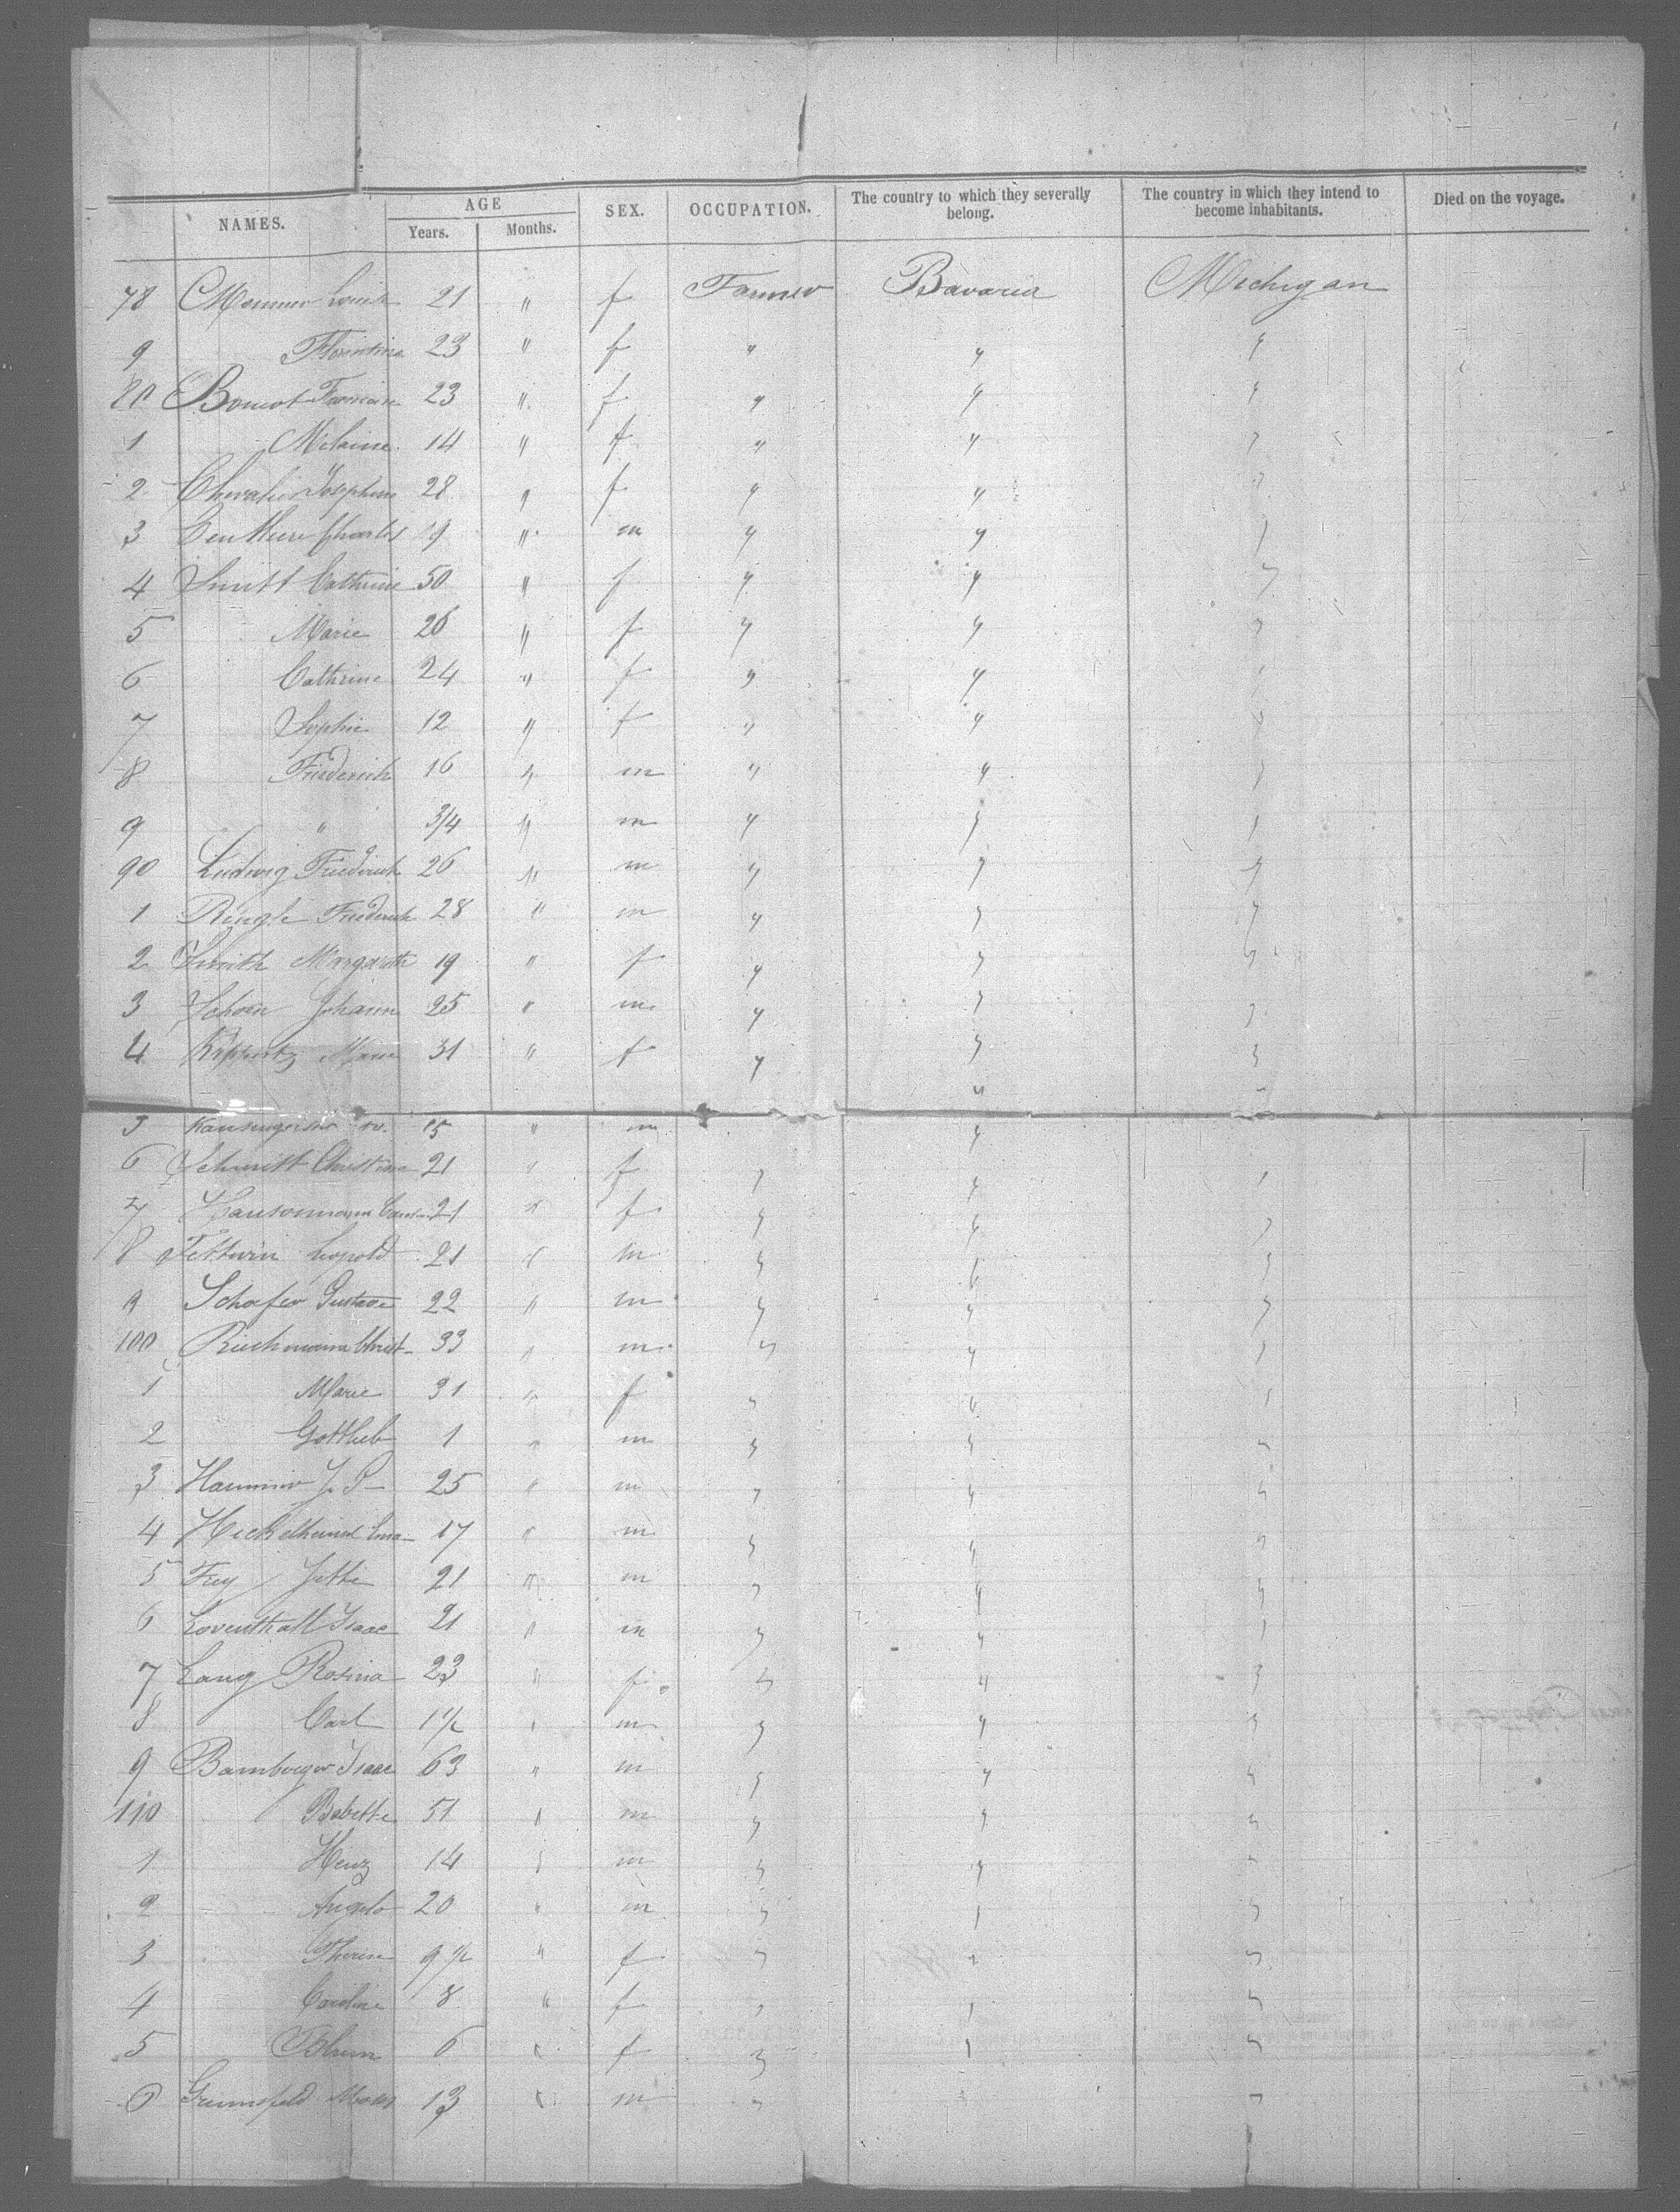 NAMES. AGE Years. Months. SEX. OCCUPATION. The country to which they severally belong. The country in which they intend to become inhabitants. Died on the voyage.
78 Louise 21 " f Farmer Bavaria Michigan
9 Florintina 23 " f " " "
80 23 " f " " "
1 Melaine 14 " f " " "
2 Chevalier Josephine 28 " f " " "
3 Charles 19 " m " " "
4 Smitt Cathrine 50 " f " " "
5 Marie 26 " f " " "
6 Cathrine 24 " f " " "
7 Sophie 12 " f " " "
8 Friederich 16 " m " " "
9 " 3/4 " m " " "
90 Ludwig Friederich 26 " m " " "
1 Ringle Friederich 28 " m " " "
2 Smith Margareth 19 " f " " "
3 Schoen Johann 25 " m " " "
4 Kippertz Marie 31 " f " " "
5 " m "
6 Schmitt Christine 21 " f " " "
7 21 " f " " "
8 Leopold 21 " m " " "
9 Schafer Gustave 22 " m " " "
100 Riechmann Christ 33 " m " " "
1 Marie 31 " f " " "
2 Gottlieb 1 " m " " "
3 Hammer J. P. 25 " m " " "
4 17 " m " " "
5 Frey Jette 21 " m " " "
6 Loventhall Isaac 21 " m " " "
7 Lang Rosina 23 " f " " "
8 Carl 1 1/2 " m " " "
9 Bamberger Isaac 63 " m " " "
110 Babette 51 " m " " "
1 Henz 14 " m " " "
2 Angelo 20 " m " " "
3 Therese 9 1/2 " f " " "
4 Caroline 8 " f " " "
5 Blum 6 " f " " "
6 Moses 13 " m " " "